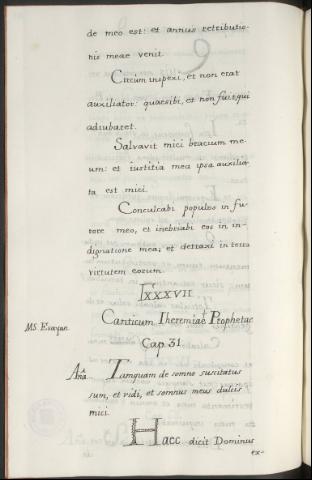 de meo est: et annus retributio-
nis meae venit.
Circum inspexi, et non erat
auxiliator: quaesibi, et non fuit, qui
adiubaret.
Salvavit mici bracium me-
um: et iustitia mea ipsa auxilia-
ta est mici.
Conculcabi populos in fu-
rore meo, et inebriabi eos in in-
dignatione mea; et detraxi in terra
virtutem eorum.
LXXXVII
Canticum Iheremiae Prophetae
Cap. 31.
Aña Tamquam de somno suscitatus
sum, et vidi, et somnus meus dulcis
mici.
Haec dicit Dominus
ex-